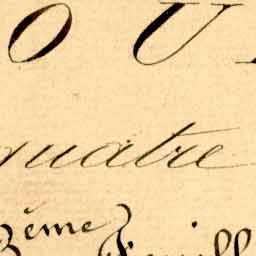 O U
quatre
3ème Feuill